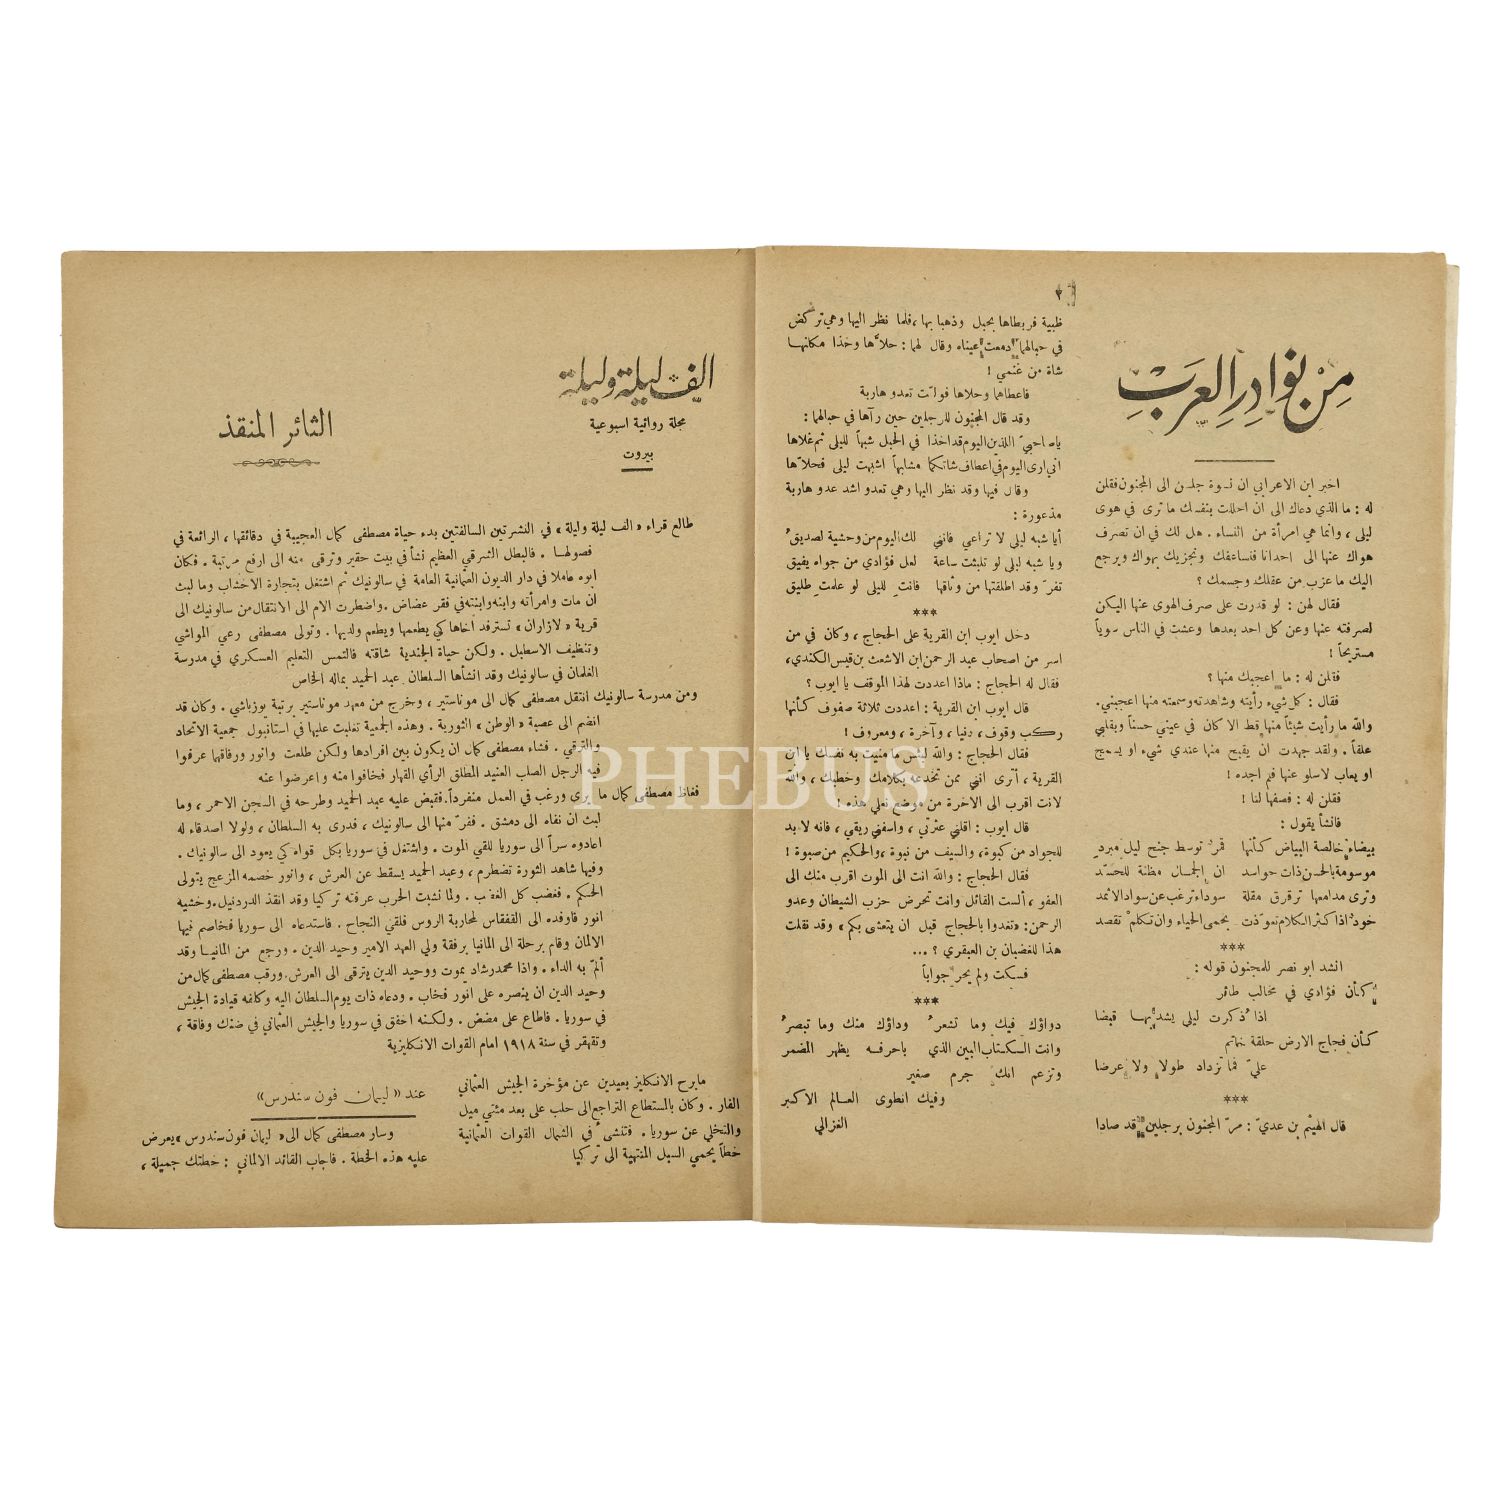 من نوادر العرب
اخبر ابن الاعرابي ان نسوة جلسن الى المجنون فقلن
له : ما الذي دعاك الى ان احللت بنفسك ما ترى في هوى
ليلى ، وانما هي امرأة من النساء . هل لك في ان تصرف
هواك عنها الى احدانا فنساعفك ونجزيك بهواك ويرجع
اليك ما عزب من عقلك وجسمك ؟
فقال لهن : لو قدرت على صرف الهوى عنها اليكن
لصرفته عنها وعن كل احد بعدها وعشت في الناس سوياً
مستريحاً !
فقلن له : ما اعجبك منها ؟
فقال : كل شيء رأيته وشاهدته وسمعته منها اعجبني .
والله ما رأيت شيئاً منها قط الا كان في عيني حسناً وبقلبي
علقاً . ولقد جهدت ان يقبح منها عندي شيء او يسمج
او يعاب لاسلو عنها فلم اجده !
فقلن له : فصفها لنا !
فانشأ يقول :
بيضاء خالصة البياض كأنها قمر توسط جنح ليل مبرد
موسومة بالحسن ذات حواسد ان الجمال مظنة للحسّد
وترى مدامعها ترقرق مقلة سوداء ترغب عن سواد الاثمد
خود اذا كثر الكلام تعوذت بحمى الحياء وان تكلم تقصد
***
انشد ابو نصر للمجنون قوله :
كأن فؤادي في مخالب طائر
اذا ذكرت ليلى يشد بها قبضا
كأن فجاج الارض حلقة خاتم
عليّ فما تزداد طولا ولا عرضا
***
قال الهيثم بن عديّ : مرّ المجنون برجلين قد صادا
٢
ظبية فربطاها بحبل وذهبا بها ، فلما نظر اليها وهي تركض
في حبالهما دمعت عيناه وقال لهما : حلاّها وخذا مكانها
شاة من غنمي !
فاعطاهما وحلاها فولت تعدو هاربة
وقد قال المجنون للرجلين حين رآها في حبالهما :
يا صاحبيّ اللذين اليوم قد اخذا في الحبل شبهاً لليلى ثم غلاها
اني ارى اليوم في اعطاف شاتكما مشابهاً اشبهت ليلى فحلاّها
وقال فيها وقد نظر اليها وهي تعدو اشد عدو هاربة
مذعورة :
أيا شبه ليلى لا تراعي فانني لك اليوم من وحشية لصديق
ويا شبه ليلى لو تلبثت ساعة لعل فؤادي من جواه يفيق
تفرّ وقد اطلقتها من وثاقها فانت لليلى لو علمت طليق
***
دخل ايوب ابن القرية على الحجاج ، وكان في من
اسر من اصحاب عبد الرحمن ابن الاشعث بن قيس الكندي ،
فقال له الحجاج : ماذا اعددت لهذا الموقف يا ايوب ؟
قال ايوب ابن القرية : اعددت ثلاثة صفوف كأنها
ركب وقوف ، دنيا ، وآخرة ، ومعروف !
فقال الحجاج : والله لبئس ما منيت به نفسك يا ابن
القرية ، أترى انني ممن تخدعه بكلامك وخطبك ، والله
لانت اقرب الى الآخرة من موضع نعلي هذه !
قال ايوب : اقلني عثرتي ، واسقني ريقي ، فانه لا بد
للجواد من كبوة ، والسيف من نبوة ، والحكيم من صبوة !
فقال الحجاج : والله انت الى الموت اقرب منك الى
العفو ، ألست القائل وانت تحرض حزب الشيطان وعدو
الرحمن : «تغدوا بالحجاج قبل ان يتعشى بكم» وقد نقلت
هذا للغضبان بن العبقري ؟ ...
فسكت ولم يحر جواباً
***
دواؤك فيك وما تشعر وداؤك منك وما تبصر
وانت الكتاب المبين الذي باحرفه يظهر المضمر
وتزعم انك جرم صغير
وفيك انطوى العالم الاكبر
الغزالي
الف ليلة وليلة
مجلة روائية اسبوعية
بيروت
الثائر المنقذ
طالع قراء «الف ليلة وليلة» في النشرتين السالفتين بدء حياة مصطفى كمال العجيبة في دقائقها ، الرائعة في
فصولها . فالبطل الشرقي العظيم نشأ في بيت حقير وترقى منه الى ارفع مرتبة . فكان
ابوه عاملا في دار الديون العثمانية العامة في سالونيك ثم اشتغل بتجارة الاخشاب وما لبث
ان مات وامرأته وابنه وابنته في فقر عضاض . واضطرت الام الى الانتقال من سالونيك الى
قرية «لازاران» تسترفد اخاها كي يطعمها ويطعم ولديها . وتولى مصطفى رعي المواشي
وتنظيف الاسطبل . ولكن حياة الجندية شاقته فالتمس التعليم العسكري في مدرسة
الغلمان في سالونيك وقد انشأها السلطان عبد الحميد بماله الخاص
ومن مدرسة سالونيك انتقل مصطفى كمال الى موناستير ، وخرج من معهد موناستير برتبة يوزباشي . وكان قد
انضم الى عصبة «الوطن» الثورية . وهذه الجمعية تغلبت عليها في استانبول جمعية الاتحاد
والترقي . فشاء مصطفى كمال ان يكون بين افرادها ولكن طلعت وانور ورفاقهما عرفوا
فيه الرجل الصلب العنيد المطلق الرأي القهار فخافوا منه واعرضوا عنه
فغاظ مصطفى كمال ما يرى ورغب في العمل منفرداً . فقبض عليه عبد الحميد وطرحه في السجن الاحمر ، وما
لبث ان نفاه الى دمشق . ففرّ منها الى سالونيك ، فدرى به السلطان ، ولولا اصدقاء له
اعادوه سراً الى سوريا للقي الموت . واشتغل في سوريا بكل قواه كي يعود الى سالونيك .
وفيها شاهد الثورة تضطرم ، وعبد الحميد يسقط عن العرش ، وانور خصمه المزعج يتولى
الحكم . فغضب كل الغضب . ولما نشبت الحرب عرفته تركيا وقد انقذ الدردنيل . وخشيه
انور فاوفده الى القفقاس لمحاربة الروس فلقي النجاح . فاستدعاه الى سوريا فخاصم فيها
الالمان وقام برحلة الى المانيا برفقة ولي العهد الامير وحيد الدين . ورجع من المانيا وقد
ألمّ به الداء . واذا محمد رشاد يموت ووحيد الدين يترقى الى العرش . ورقب مصطفى كمال من
وحيد الدين ان ينصره على انور فخاب . ودعاه ذات يوم السلطان اليه وكلفه قيادة الجيش
في سوريا . فاطاع على مضض . ولكنه اخفق في سوريا والجيش العثماني في ضنك وفاقة ،
وتقهقر في سنة ١٩١٨ امام القوات الانكليزية
ما برح الانكليز بعيدين عن مؤخرة الجيش العثماني
الفار . وكان بالمستطاع التراجع الى حلب على بعد مئتي ميل
والتخلي عن سوريا . فتنشىء في الشمال القوات العثمانية
خطاً يحمي السبل المنتهية الى تركيا
عند «ليمان فون سندرس»
وسار مصطفى كمال الى «ليمان فون سندرس» يعرض
عليه هذه الخطة . فاجاب القائد الالماني : خطتك جميلة ،
PHEBUS